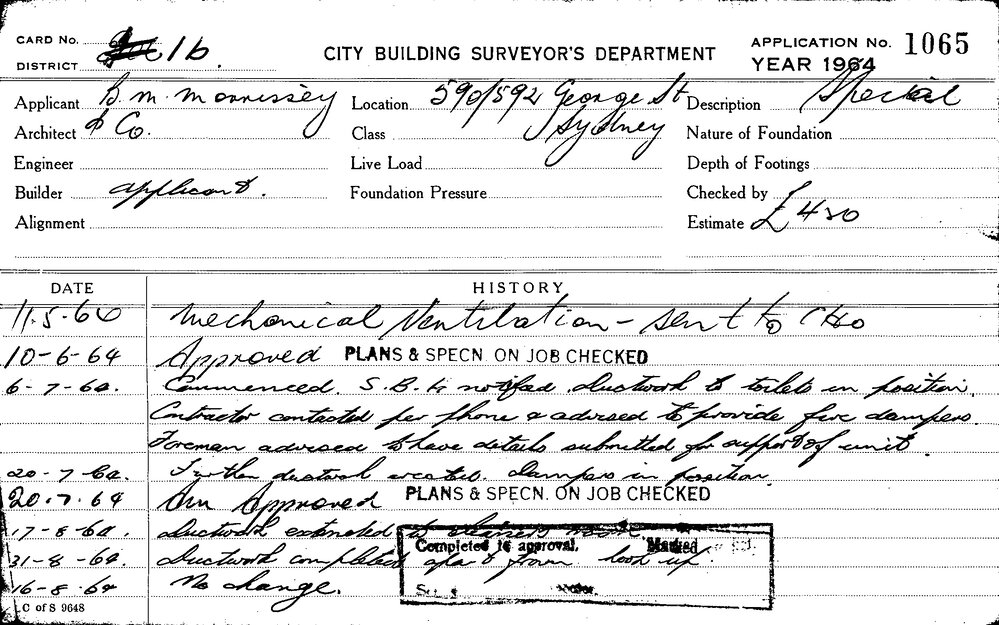 CARD No. 16.
DISTRICT
CITY BUILDING SURVEYOR'S DEPARTMENT
APPLICATION No. 1065
YEAR 1964
Applicant B. M. Morrissey Location 590/592 George St Description Special
Architect & Co. Class Sydney Nature of Foundation
Engineer Live Load Depth of Footings
Builder applicant. Foundation Pressure Checked by
Alignment Estimate £450
DATE HISTORY
11.5.64 Mechanical Ventilation - sent to CHO
10-6-64 Approved PLANS & SPECN. ON JOB CHECKED
6-7-64. Commenced. S.B. to notified ductwork to toilets in position.
Contractor contacted per phone & advised to provide fire dampers.
Foreman advised to have details submitted for support of unit.
20-7-64. Further ductwork erected. Dampers in position.
20.7.64 Am Approved PLANS & SPECN. ON JOB CHECKED
17-8-64. Ductwork extended to cleaners room.
31-8-64. Ductwork completed apart from look up.
Completed to approval. Marked
16-8-64 No change.
C of S 9648